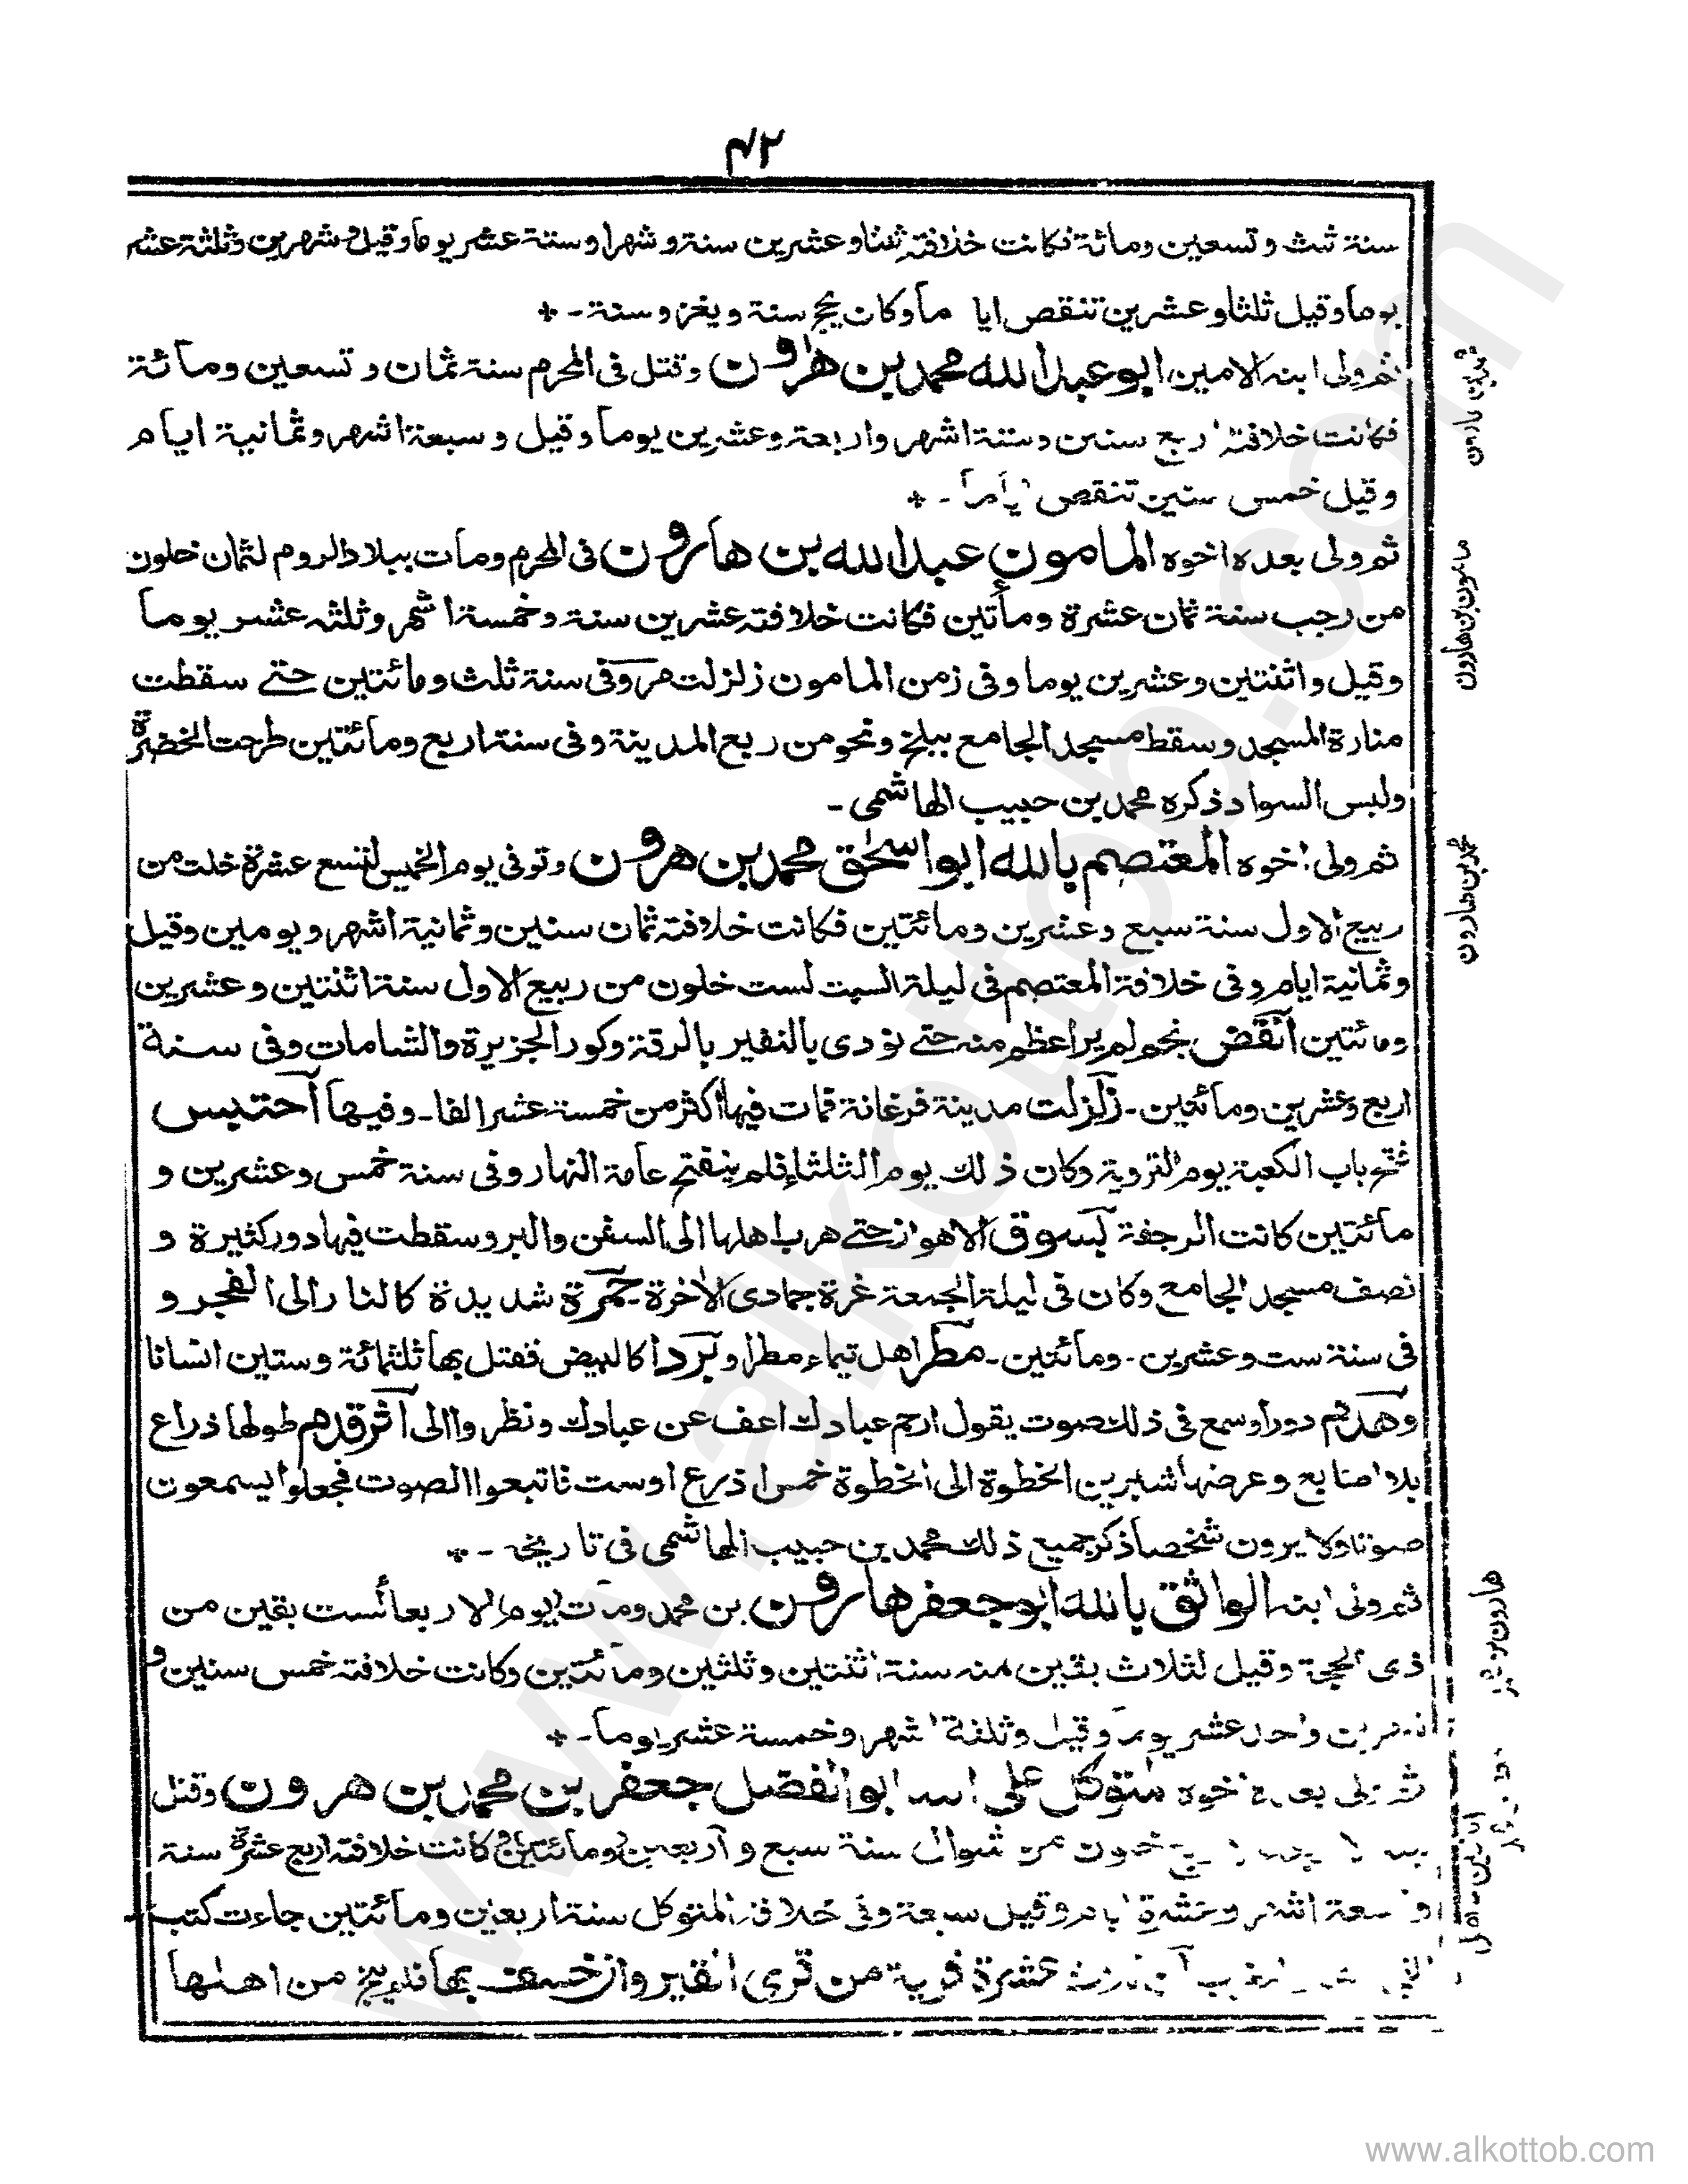 ٤٢
سنة ثلث و تسعين ومائة فكانت خلافته ثنتا وعشرين سنة و شهرا وستة عشر يوما وقيل و شهرين وثلثة عشر
يوما وقيل ثلثا وعشرين تنقص ايا ما وكان يحج سنة و يغزو سنة - *
ثم ولى ابنه الامين ابو عبد الله محمد بن هارون وقتل فى المحرم سنة ثمان و تسعين ومائة
فكانت خلافته اربع سنين وستة اشهر واربعة وعشرين يوما وقيل و سبعة اشهر وثمانية ايام
وقيل خمس سنين تنقص اياما - *
ثم ولى بعده اخوه المامون عبد الله بن هارون فى المحرم ومات ببلاد الروم لثمان خلون
من رجب سنة ثمان عشرة ومأتين فكانت خلافته عشرين سنة وخمسة اشهر وثلثه عشر يوما
وقيل واثنتين وعشرين يوما وفى زمن المامون زلزلت مرو فى سنة ثلث ومائتين حتے سقطت
منارة المسجد وسقط مسجد الجامع ببلخ ونحو من ربع المدينة وفى سنة اربع ومائتين طرحت الخضرة
ولبس السواد ذكره محمد بن حبيب الهاشمى -
ثم ولى اخوه المعتصم بالله ابو اسحٰق محمد بن هرون وتوفى يوم الخميس لتسع عشرة خلت من
ربيع الاول سنة سبع وعشرين ومائتين فكانت خلافته ثمان سنين وثمانية اشهر ويومين وقيل
وثمانية ايام وفى خلافة المعتصم فى ليلة السبت لست خلون من ربيع الاول سنة اثنتين وعشرين
ومائتين انقض نجم لم ير اعظم منه حتے نودى بالنفير بالرقة وكور الجزيرة والشامات وفى سنة
اربع وعشرين ومائتين - زلزلت مدينة فرغانة فمات فيها اكثر من خمسة عشر الفا - وفيها احتبس
فتح باب الكعبة يوم التروية وكان ذلك يوم الثلثاء فلم ينفتح عامة النهار وفى سنة خمس وعشرين و
مائتين كانت الرجفة بسوق الاهواز حتے هرب اهلها الى السفن والبر وسقطت فيها دور كثيرة و
نصف مسجد الجامع وكان فى ليلة الجمعة غرة جمادى الاخرة - حمرة شديدة كالنار الى الفجر و
فى سنة ست وعشرين - ومائتين - مطر اهل تيماء مطرا و بردا كالبيض فقتل بها ثلثمائة وستين انسانا
وهدم دورا وسمع فى ذلك صوت يقول ارحم عبادك اعف عن عبادك ونظروا الى اثر قدم طولها ذراع
بلا اصابع وعرضها شبرين الخطوة الى الخطوة خمس اذرع اوست فاتبعوا الصوت فجعلوا يسمعون
صوتا ولا يرون شخصا ذكر جميع ذلك محمد بن حبيب الهاشمى فى تاريخه - *
ثم ولى ابنه الواثق بالله ابو جعفر هارون بن محمد ومات يوم الاربعا لست بقين من
ذى الحجة وقيل لثلاث بقين منه سنة اثنتين وثلثين ومائتين وكانت خلافته خمس سنين و
واحد عشر يوما وقيل وثلثة اشهر وخمسة عشر يوما - *
ثم ولى بعده اخوه المتوكل على الله ابو الفضل جعفر بن محمد بن هرون وقتل
خلون من شوال سنة سبع و اربعين ومائتين كانت خلافته اربع عشرة سنة
و تسعة اشهر وعشرة ايام وقيل سبعة وفى خلافة المتوكل سنة اربعين ومائتين جاءت كتب
عشرة قرية من قرى القيروان خسف بها فلم ينج من اهلها
محمد بن هارون
مامون بن هارون
محمد بن هارون